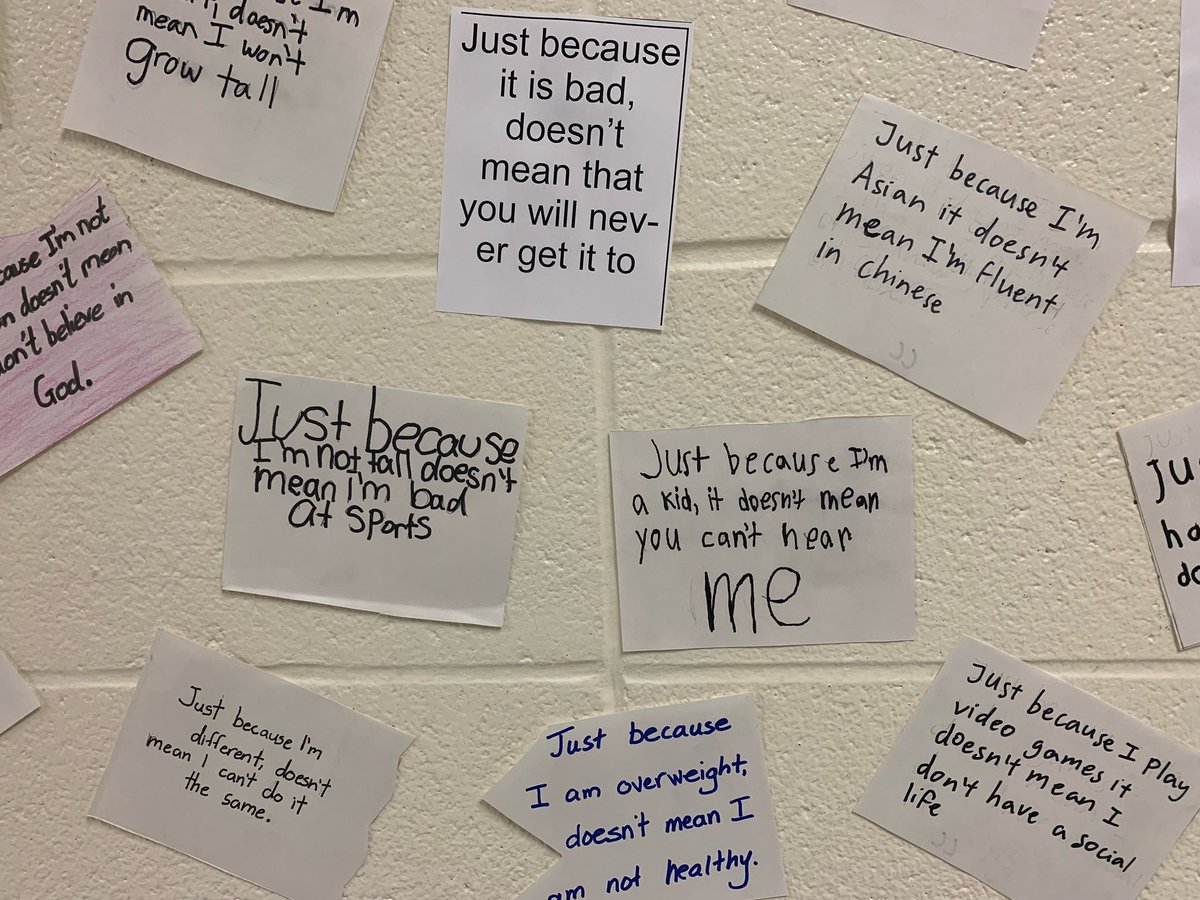 I'm
doesn't
mean I won't
grow tall
Just because
it is bad,
doesn't
mean that
you will nev-
er get it to
Just because I'm
Asian it doesn't
mean I'm fluent
in chinese
I'm not
doesn't mean
believe in
God.
Just because
I'm not tall doesn't
mean i'm bad
at sports
Just because I'm
a kid, it doesn't mean
you can't hear
me
Just because I'm
different, doesn't
mean I can't do it
the same.
Just because
I am overweight,
doesn't mean I
am not healthy.
Just because I play
video games it
doesn't mean I
don't have a social
life